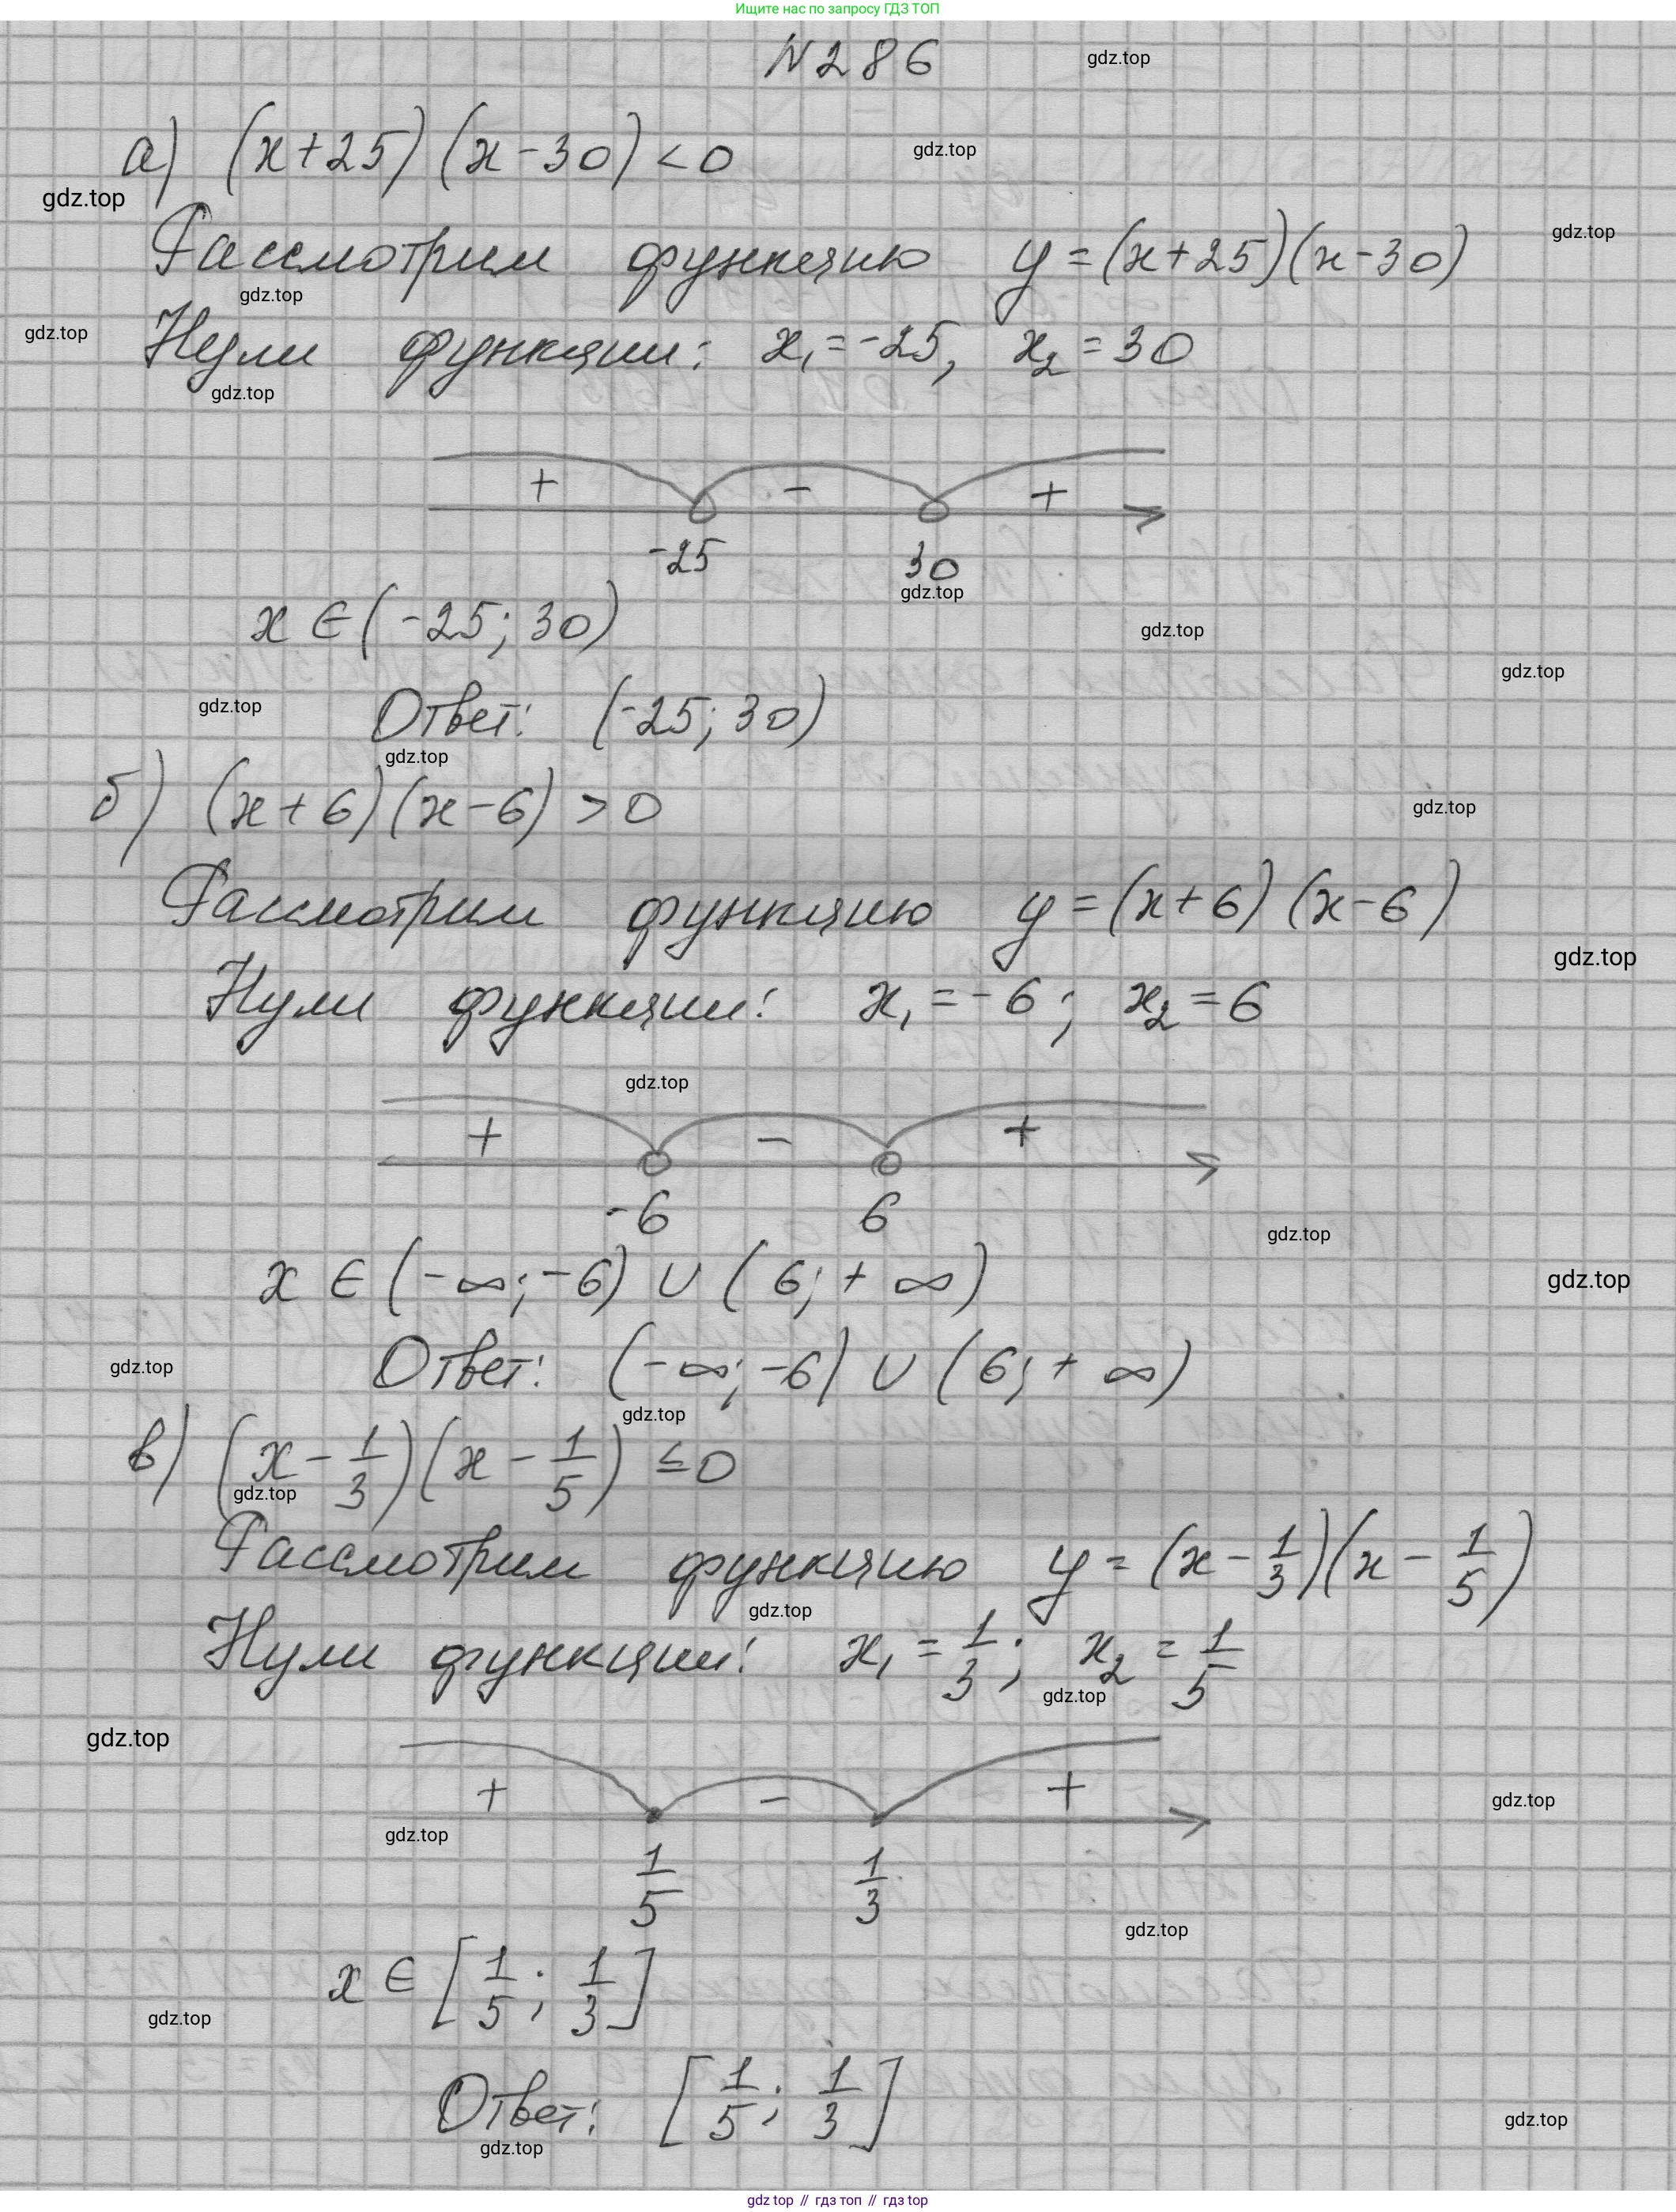 Ищите нас по запросу ГДЗ ТОП
N 286
gdz.top
а) (x+25)(x-30)<0
gdz.top
gdz.top
Рассмотрим функцию y=(x+25)(x-30)
gdz.top
gdz.top
gdz.top
Нули функции: x₁=-25, x₂=30
gdz.top
+ - +
-25 30
gdz.top
x ∈ (-25; 30)
gdz.top
gdz.top
gdz.top
Ответ: (-25; 30)
gdz.top
б) (x+6)(x-6)>0
gdz.top
Рассмотрим функцию y=(x+6)(x-6)
gdz.top
Нули функции: x₁=-6; x₂=6
gdz.top
+ - +
-6 6
gdz.top
x ∈ (-∞; -6) ∪ (6; +∞)
gdz.top
gdz.top
Ответ: (-∞; -6) ∪ (6; +∞)
gdz.top
в) (x - 1/3)(x - 1/5) ≤ 0
gdz.top
Рассмотрим функцию y = (x - 1/3)(x - 1/5)
gdz.top
Нули функции: x₁ = 1/3; x₂ = 1/5
gdz.top
gdz.top
+ - +
gdz.top
gdz.top
1/5 1/3
gdz.top
x ∈ [1/5; 1/3]
gdz.top
Ответ: [1/5; 1/3]
gdz.top
gdz.top
gdz top // гдз топ // гдз top